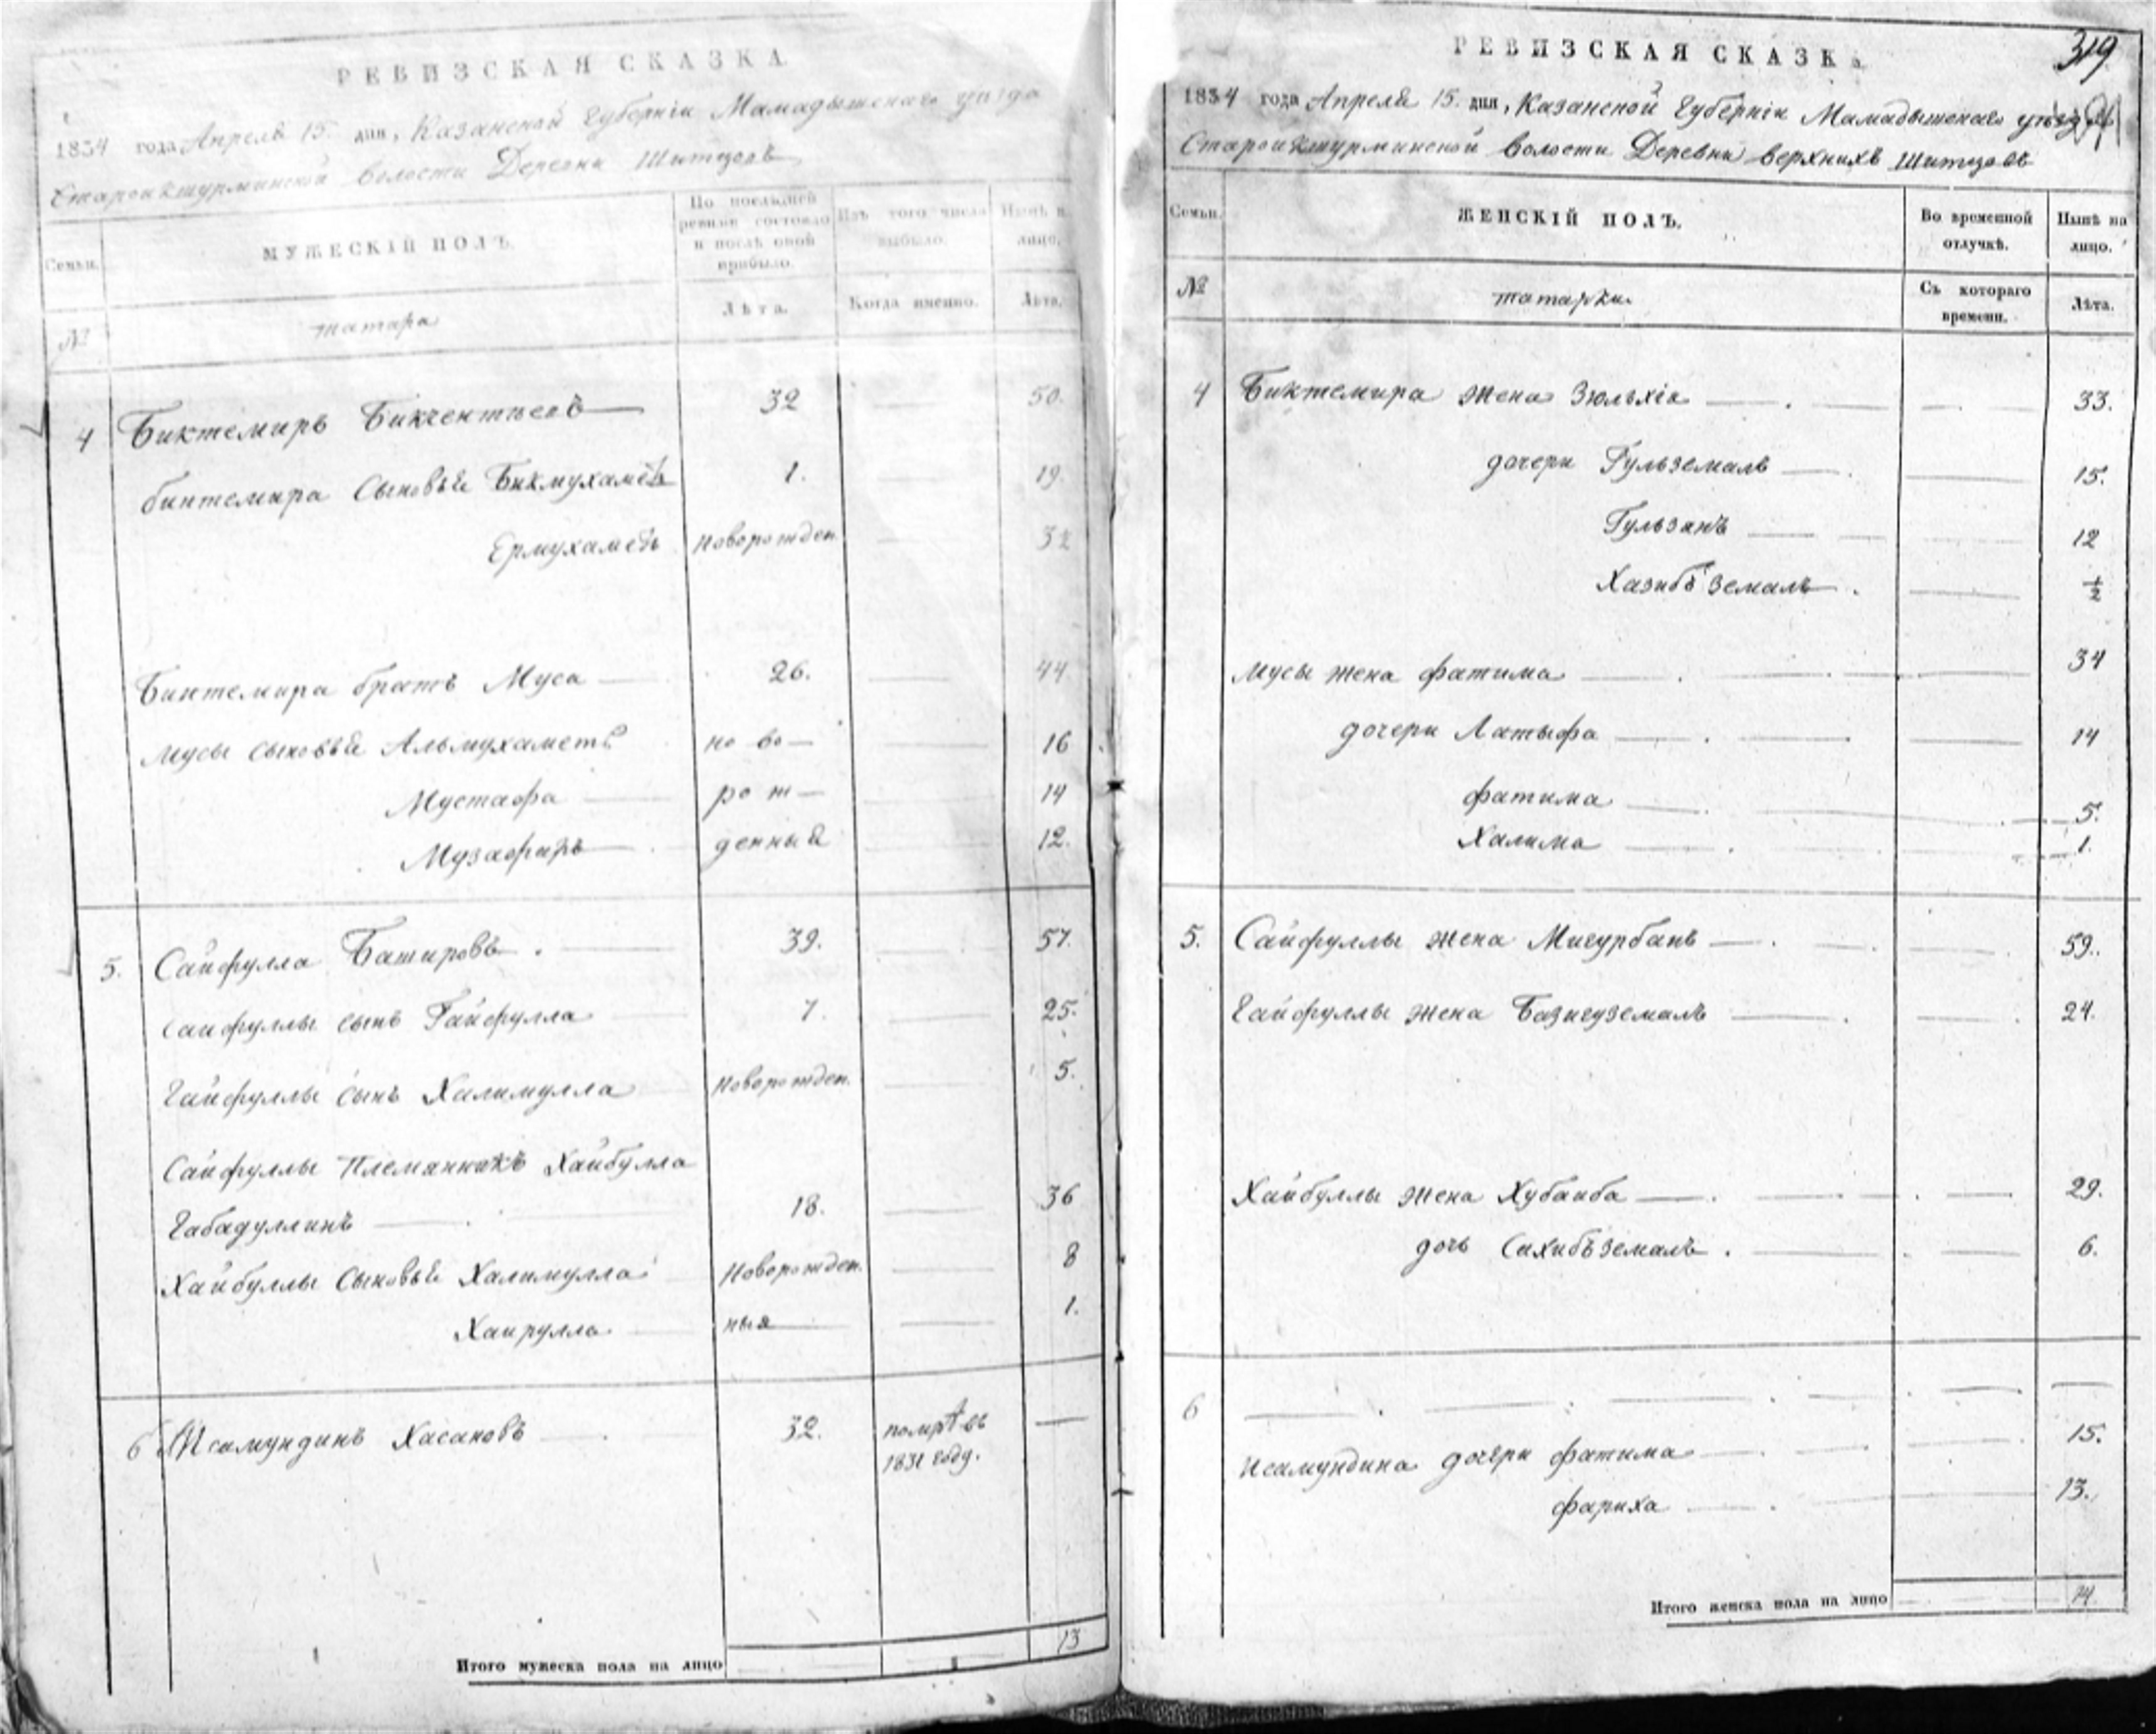 РЕВИЗСКАЯ СКАЗКА
1834 года Апреля 15. дня, Казанской Губерніи Мамадышскаго уѣзда
Староикшурминской волости Деревни Шитцовъ
Семьи.
МУЖЕСКІЙ ПОЛЪ.
По послѣдней ревизіи состояло и послѣ оной прибыло.
Изъ того числа выбыло.
Нынѣ на лицо.
№
татара
Лѣта.
Когда именно.
Лѣта.
4 Биктемиръ Бикчентѣевъ 32 50.
биктемира сыновья Бикмухаметъ 1. 19.
Ермухаметъ новорожден.
Биктемира братъ Муса 26. 44
мусы сыновья Альмухаметъ но во— 16
Мустафа рож— 14
Музафаръ денныя 12.
5. Сайфулла Башировъ. 39. 57.
сайфуллы сынъ Гайфулла 7. 25.
Гайфуллы сынъ Халимулла новорожден. 5.
Сайфуллы племянникъ Хайбулла
Габадуллинъ 18. 36
Хайбуллы сыновья Халимулла новорожден 8
Хаирулла ныя 1.
6 Исамундинъ Хасановъ 32. помрѣ въ
1831 году.
Итого мужеска пола на лицо 13
319
РЕВИЗСКАЯ СКАЗКА
1834 года Апреля 15. дня, Казанской Губерніи Мамадышскаго уѣзда
Староикшурминской волости Деревни верхнихъ Шитцовъ
Семьи.
ЖЕНСКІЙ ПОЛЪ.
Во временной отлучкѣ.
Нынѣ на лицо.
№
татарки.
Съ котораго времени.
Лѣта.
4 Биктемира жена Зюльхія 33.
дочери Гульземаль 15.
Гульзанъ 12
Хазибъземаль 1/2
мусы жена фатима 34
дочери Латыфа 14
фатима 5.
Халима 1.
5. Сайфуллы жена Мигурбанъ 59.
Гайфуллы жена Базигуземаль 24.
Хайбуллы жена Хубаиба 29.
дочь Сахибъземаль. 6.
6
исамундина дочери фатима 15.
фариха 13.
Итого женска пола на лицо 14